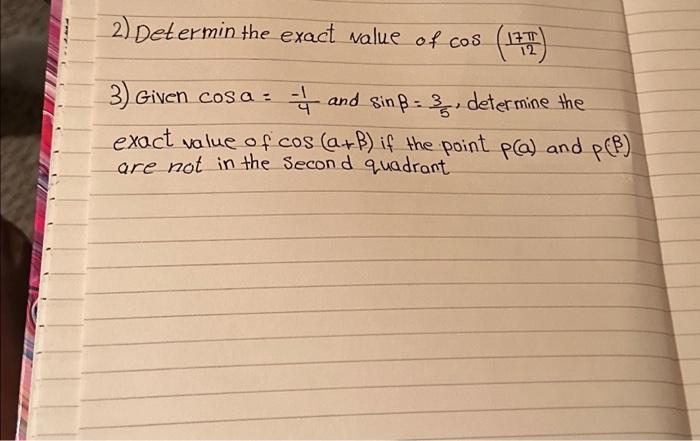 2) Determin the exact value of cos (17π/12)
3) Given cos a = -1/4 and sin β = 3/5, determine the
exact value of cos (a+β) if the point p(a) and p(β)
are not in the second quadrant